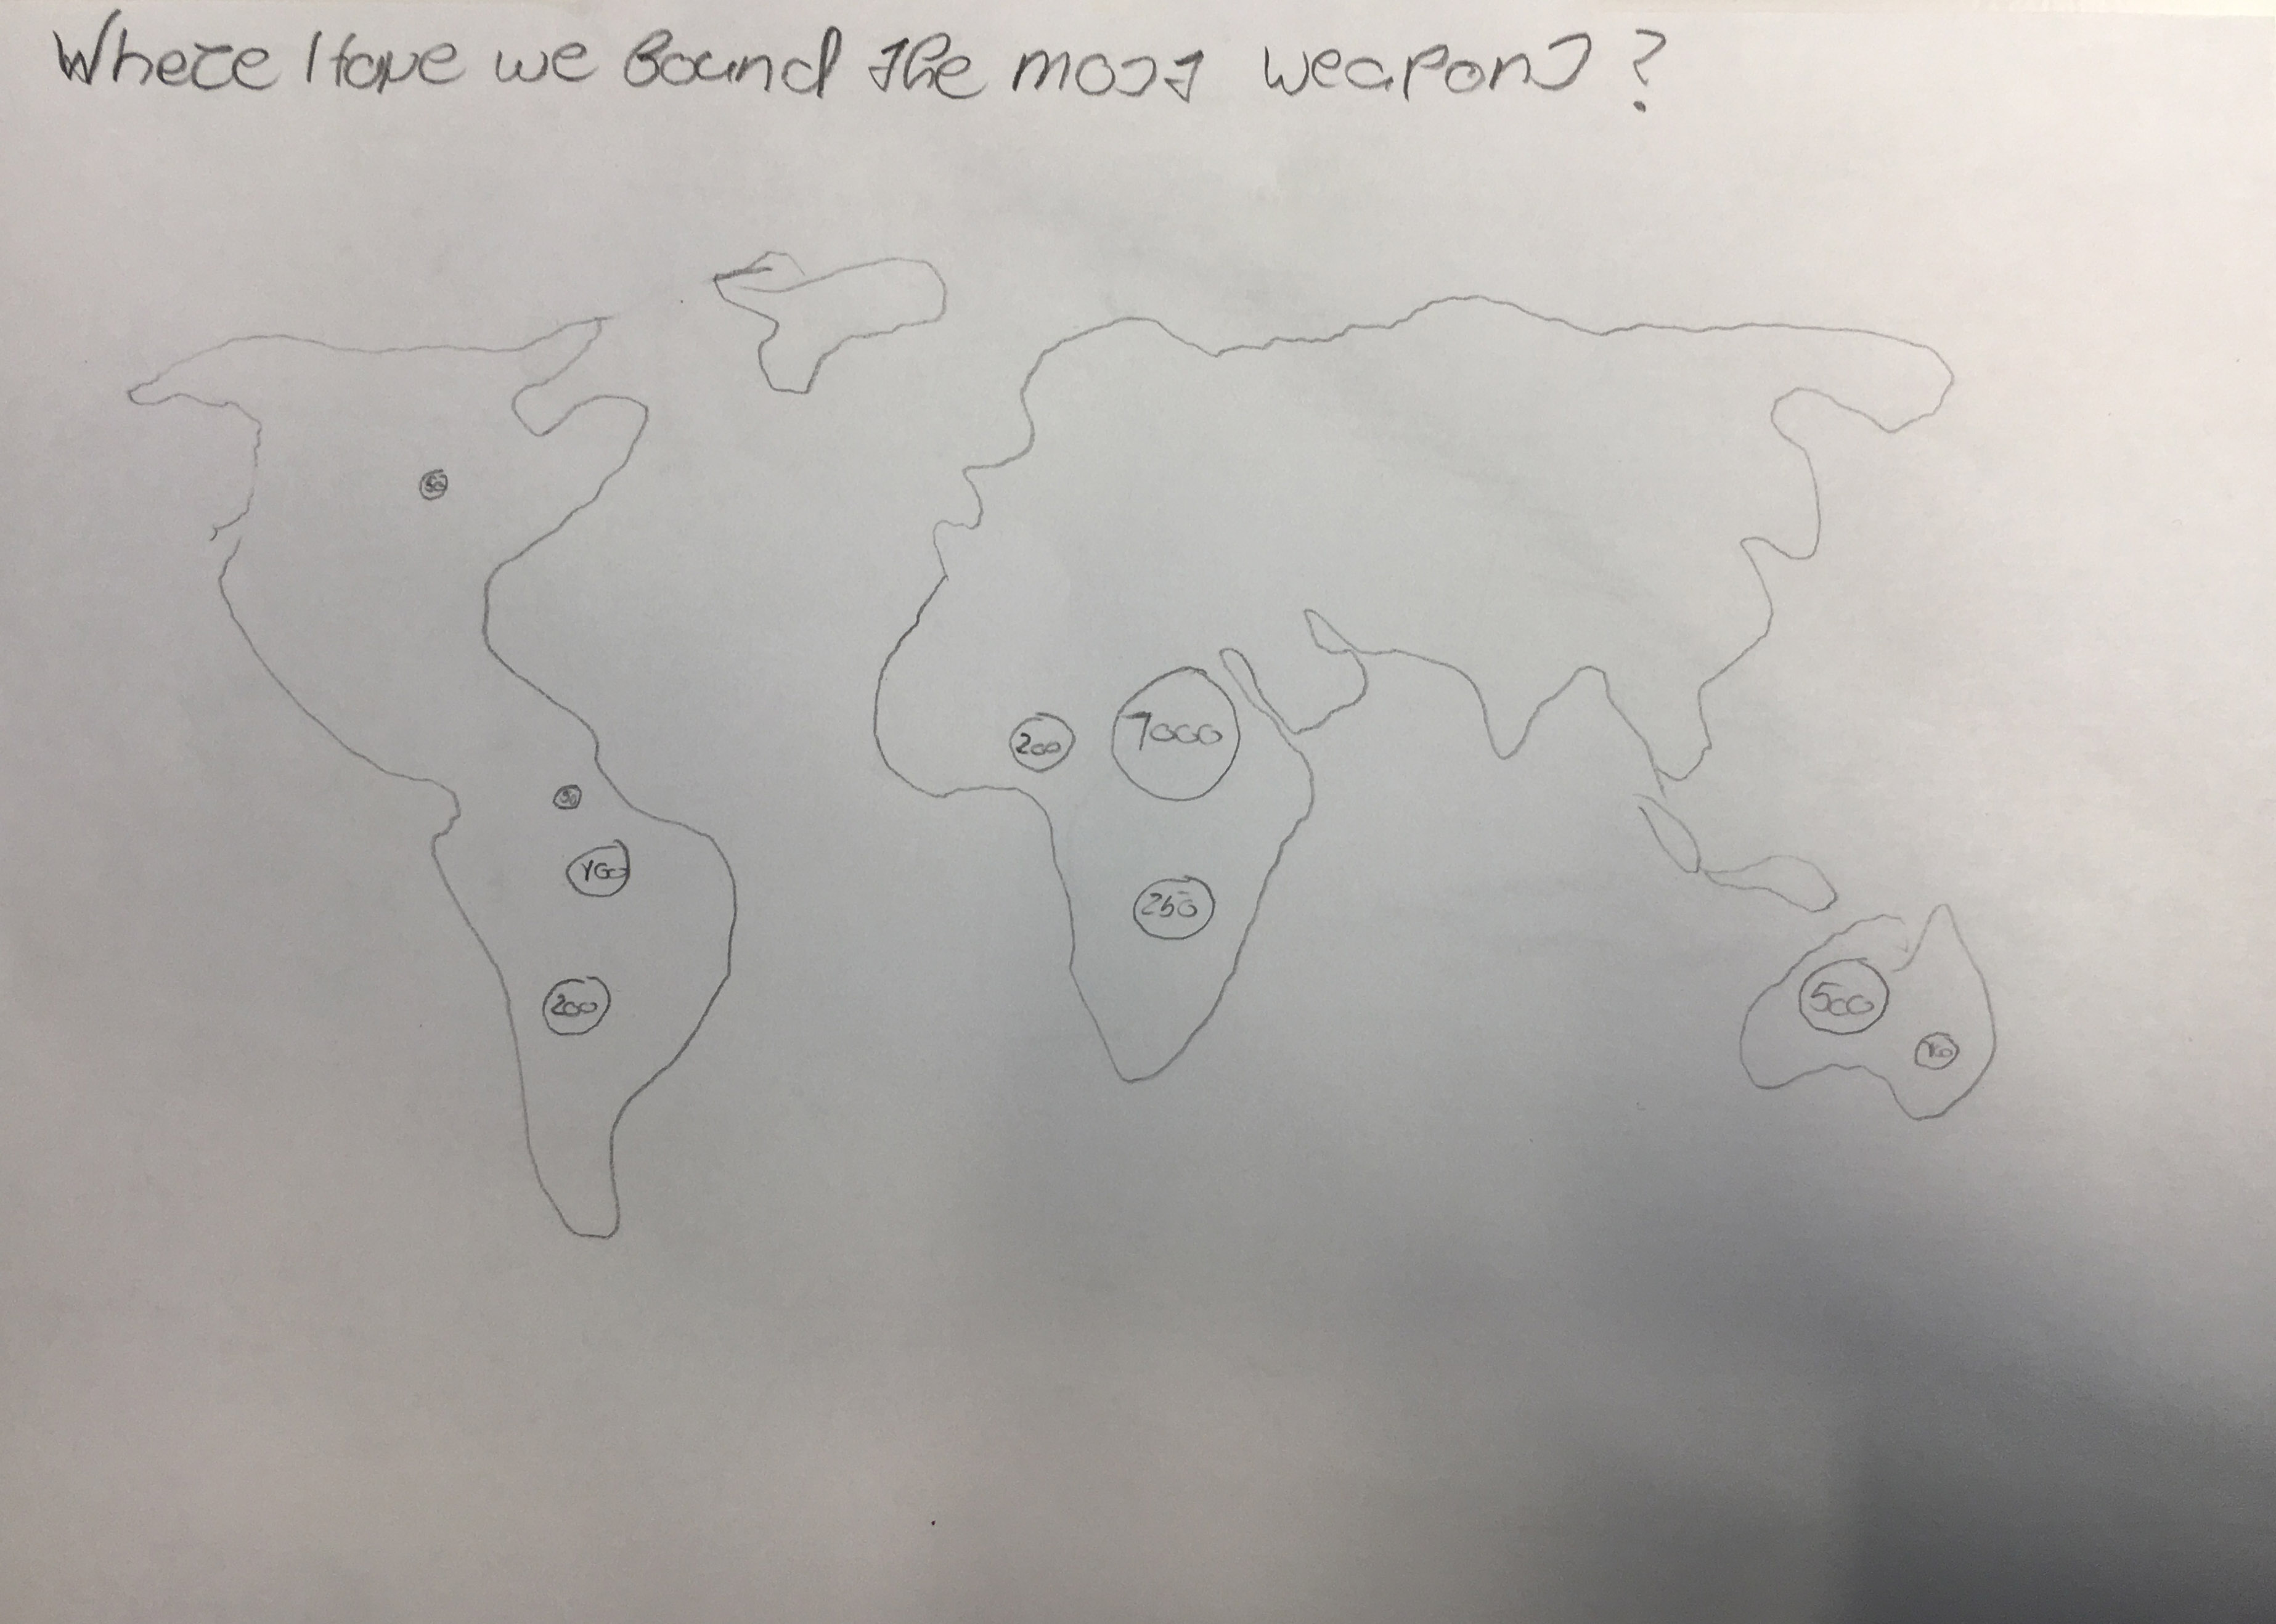 Where Have we Found the most weapons?
50
200
7000
50
100
250
200
500
100